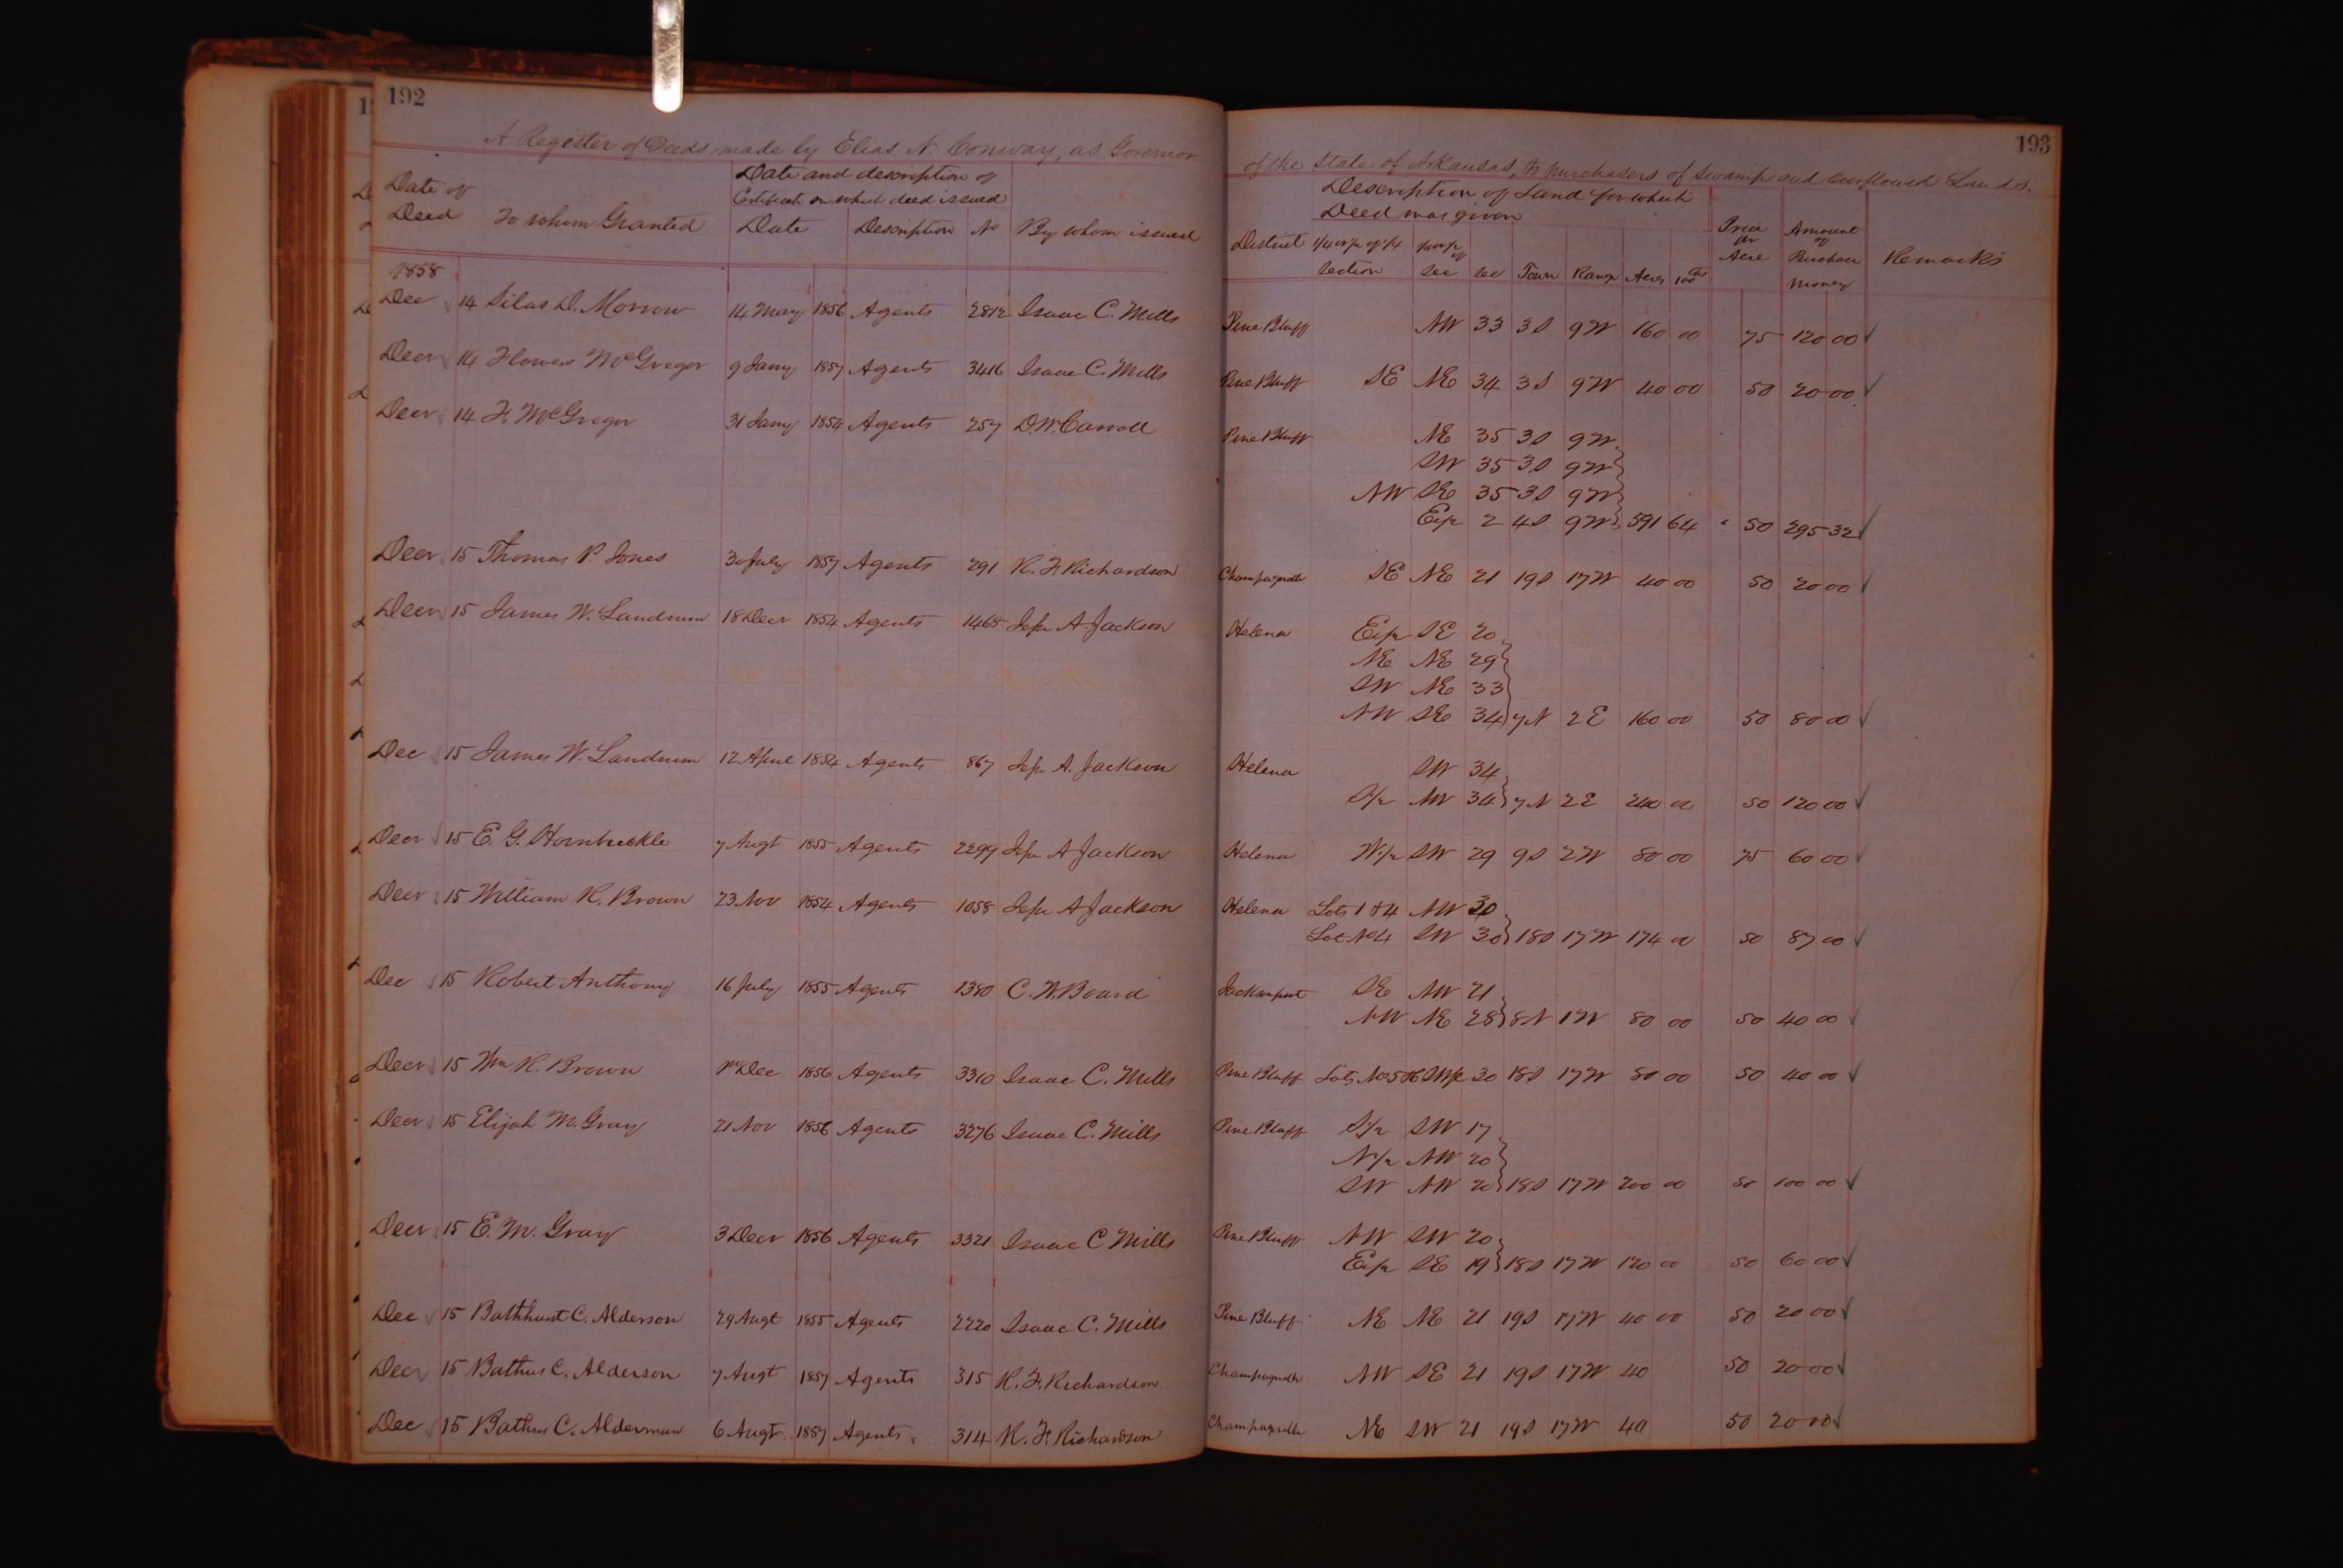 192
193
A Register of Deeds made by Elias N. Conway, as Governor of the State of Arkansas, to purchasers of Swamp and Overflowed Lands.
Date of Deed To whom Granted Date and description of Certificate on which deed issued Date Description No By whom issued
Description of Land for which Deed was given
District 1/4 or pt of 1/4 Section Sec Town Range Acres 100ths Price pr Acre Amount of Purchase Money Remarks
1858
Dec 14 Silas D. Morrow 14 May 1856 Agents 2812 Isaac C. Mills Pine Bluff NW 33 3S 9W 160 00 75 120 00
Decr 14 Flowers McGregor 9 Jany 1857 Agents 3416 Isaac C. Mills Pine Bluff SE NE 34 3S 9W 40 00 50 20 00
Decr 14 F. McGregor 31 Jany 1854 Agents 257 D.W. Carroll Pine Bluff NE 35 3S 9W
SW 35 3S 9W
NW SE 35 3S 9W
E1/2 2 4S 9W 591 64 50 295 32
Decr 15 Thomas P. Jones 30 July 1857 Agents 291 R. F. Richardson Champagnolle SE NE 21 19S 17W 40 00 50 20 00
Decr 15 James W. Landrum 18 Decr 1854 Agents 1468 Jefn A Jackson Helena E1/2 SE 20
NE NE 29
SW NE 33
NW SE 34 7N 2E 160 00 50 80 00
Dec 15 James W. Landrum 12 April 1854 Agents 867 Jefn A. Jackson Helena SW 34
S1/2 NW 34 7N 2E 240 00 50 120 00
Decr 15 E. G. Hornbuckle 7 Augt 1855 Agents 2299 Jefn A Jackson Helena W1/2 SW 29 9S 2W 80 00 75 60 00
Decr 15 William R. Brown 23 Nov 1854 Agents 1058 Jefn A Jackson Helena Lots 1 & 4 NW 30
Lot No 4 SW 30 18S 17W 174 00 50 87 00
Dec 15 Robert Anthony 16 July 1855 Agents 1350 C. W. Board Jacksonport SE NW 21
NW NE 28 8N 1W 80 00 50 40 00
Decr 15 Wm R. Brown Dec 1856 Agents 3310 Isaac C. Mills Pine Bluff Lots Nos 5 & 6 30 18S 17W 80 00 50 40 00
Decr 15 Elijah M. Gray 21 Nov 1856 Agents 3276 Isaac C. Mills Pine Bluff S1/2 SW 17
N1/2 NW 20
SW NW 20 18S 17W 200 00 50 100 00
Decr 15 E. M. Gray 3 Decr 1856 Agents 3321 Isaac C Mills Pine Bluff NW SW 20
E1/2 SE 19 18S 17W 120 00 50 60 00
Dec 15 Bathhurst C. Alderson 29 Augt 1855 Agents 2220 Isaac C. Mills Pine Bluff NE NE 21 19S 17W 40 00 50 20 00
Decr 15 Bathus C. Alderson 7 Augt 1857 Agents 315 R. F. Richardson Champagnolle NW SE 21 19S 17W 40 50 20 00
Dec 15 Bathus C. Alderman 6 Augt 1857 Agents 314 R. F. Richardson Champagnolle NE SW 21 19S 17W 40 50 20 00